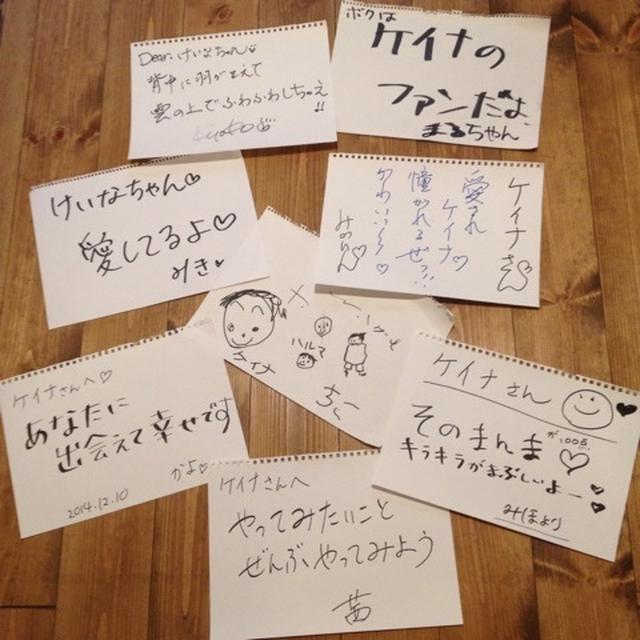 Dear. けいなちゃん
背中に羽がはえて
雲の上でふわふわしちゃえ!!
ボクは
ケイナの
ファンだよ
まるちゃん
けいなちゃん♡
愛してるよ♡
みき♥
ケイナさん
愛され
ケイナ♡
憧かれるぜっ!!
かわいい〜♡
みのりん♡
ケイナ
ハルマ
ちー
ケイナさんへ♡
あなたに
出会えて幸せです
かよ♡
2014.12.10
ケイナさん
そのまんまが100点♡
キラキラがまぶしいよー
みほより
ケイナさんへ
やってみたいこと
ぜんぶやってみよう
茜